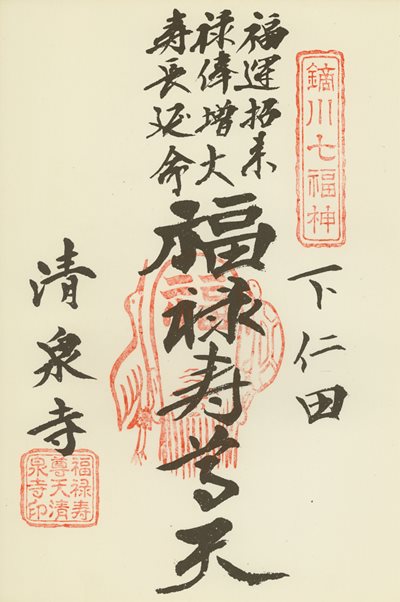 鏑川七福神
下仁田
福運招来
禄俸増大
寿長延命
福禄寿尊天
清泉寺
福禄寿
尊天清
泉寺印